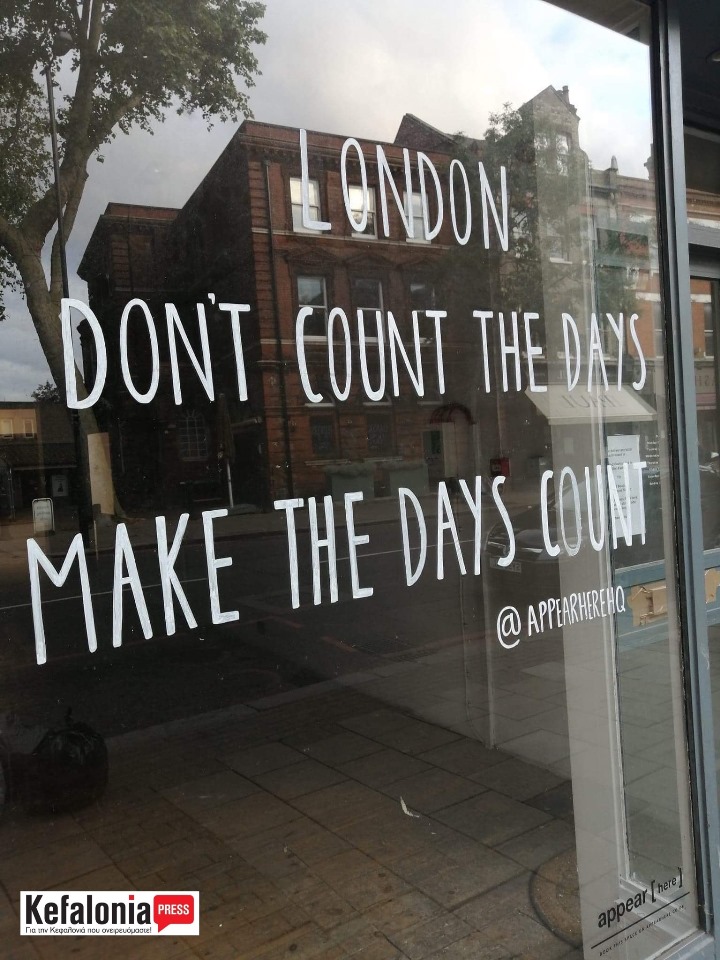 LONDON
DON'T COUNT THE DAYS
MAKE THE DAYS COUNT
@APPEARHEREHQ
appear [here]
Kefalonia PRESS
Για την Κεφαλονιά που ονειρευόμαστε!